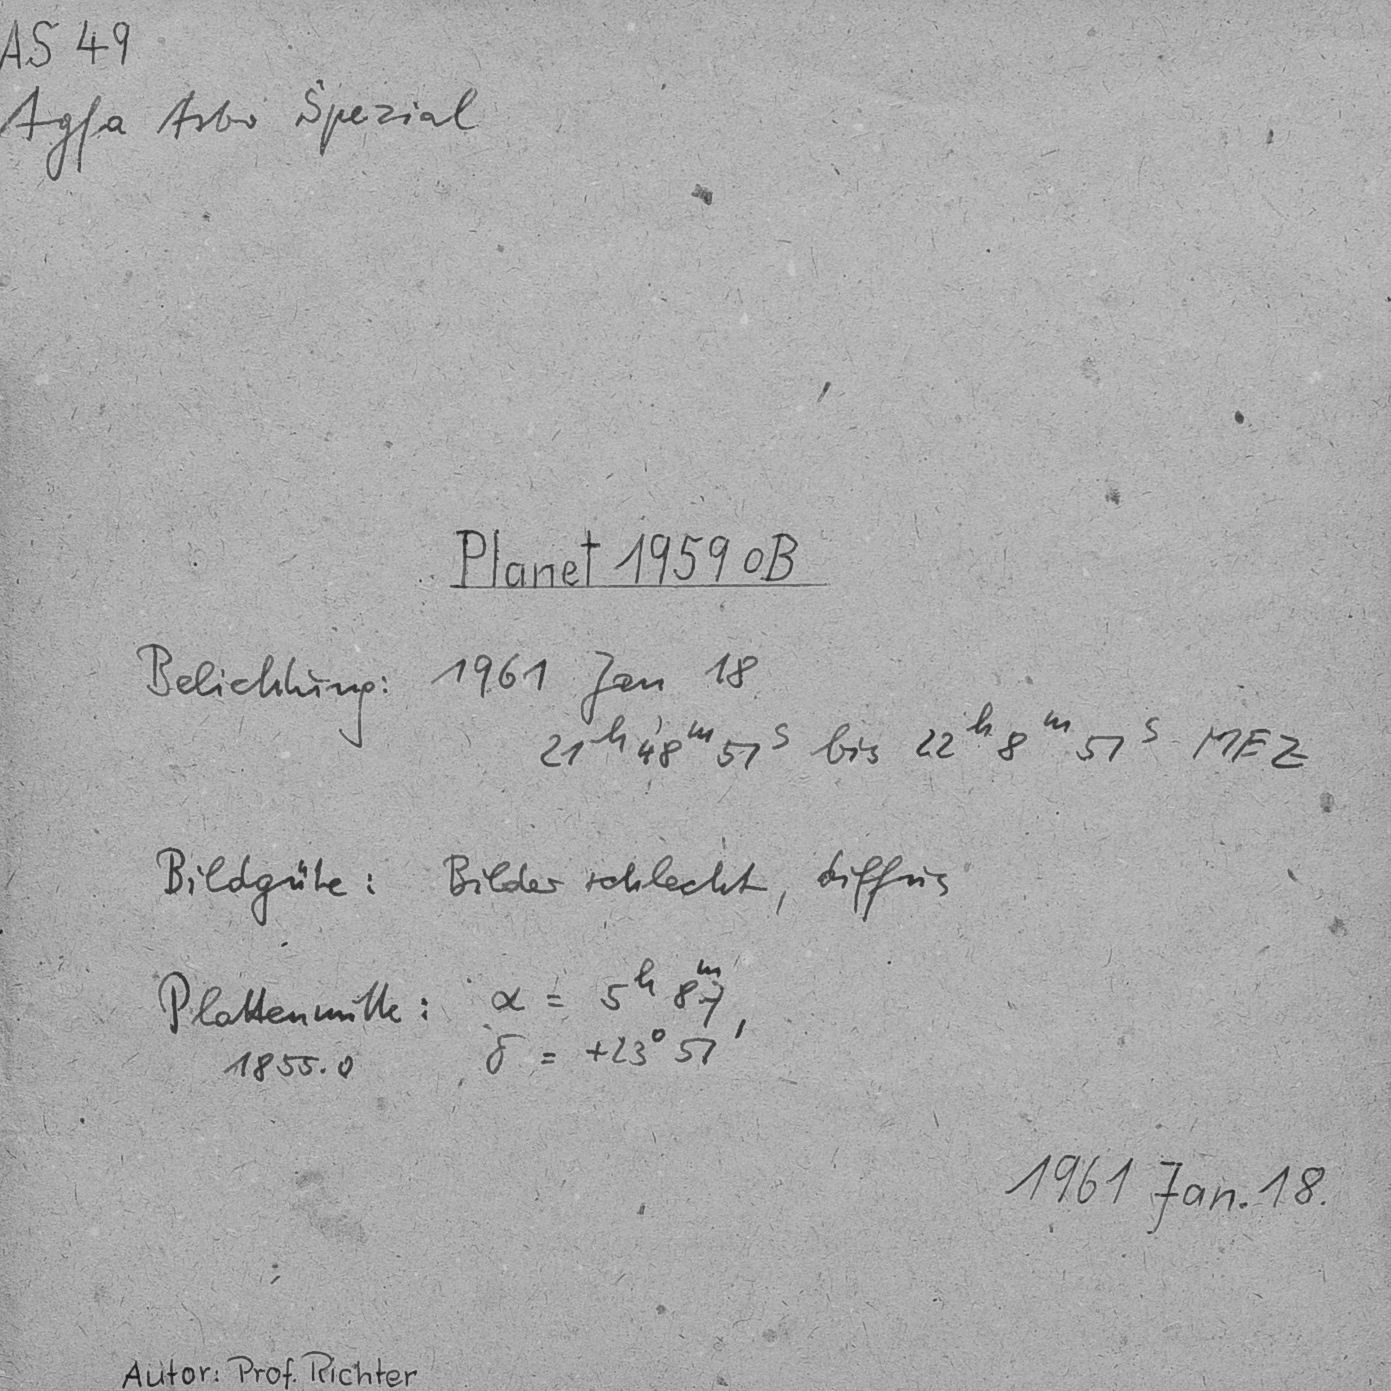 AS 49
Agfa Astro Spezial
Planet 1959 oB
Belichtung: 1961 Jan 18
21ʰ 48ᵐ 51ˢ bis 22ʰ 8ᵐ 51ˢ MEZ
Bildgüte: Bilder schlecht, diffus
Plattenmitte: α = 5ʰ 8ᵐ7
1855.0 δ = +23° 51'
1961 Jan. 18.
Autor: Prof. Richter